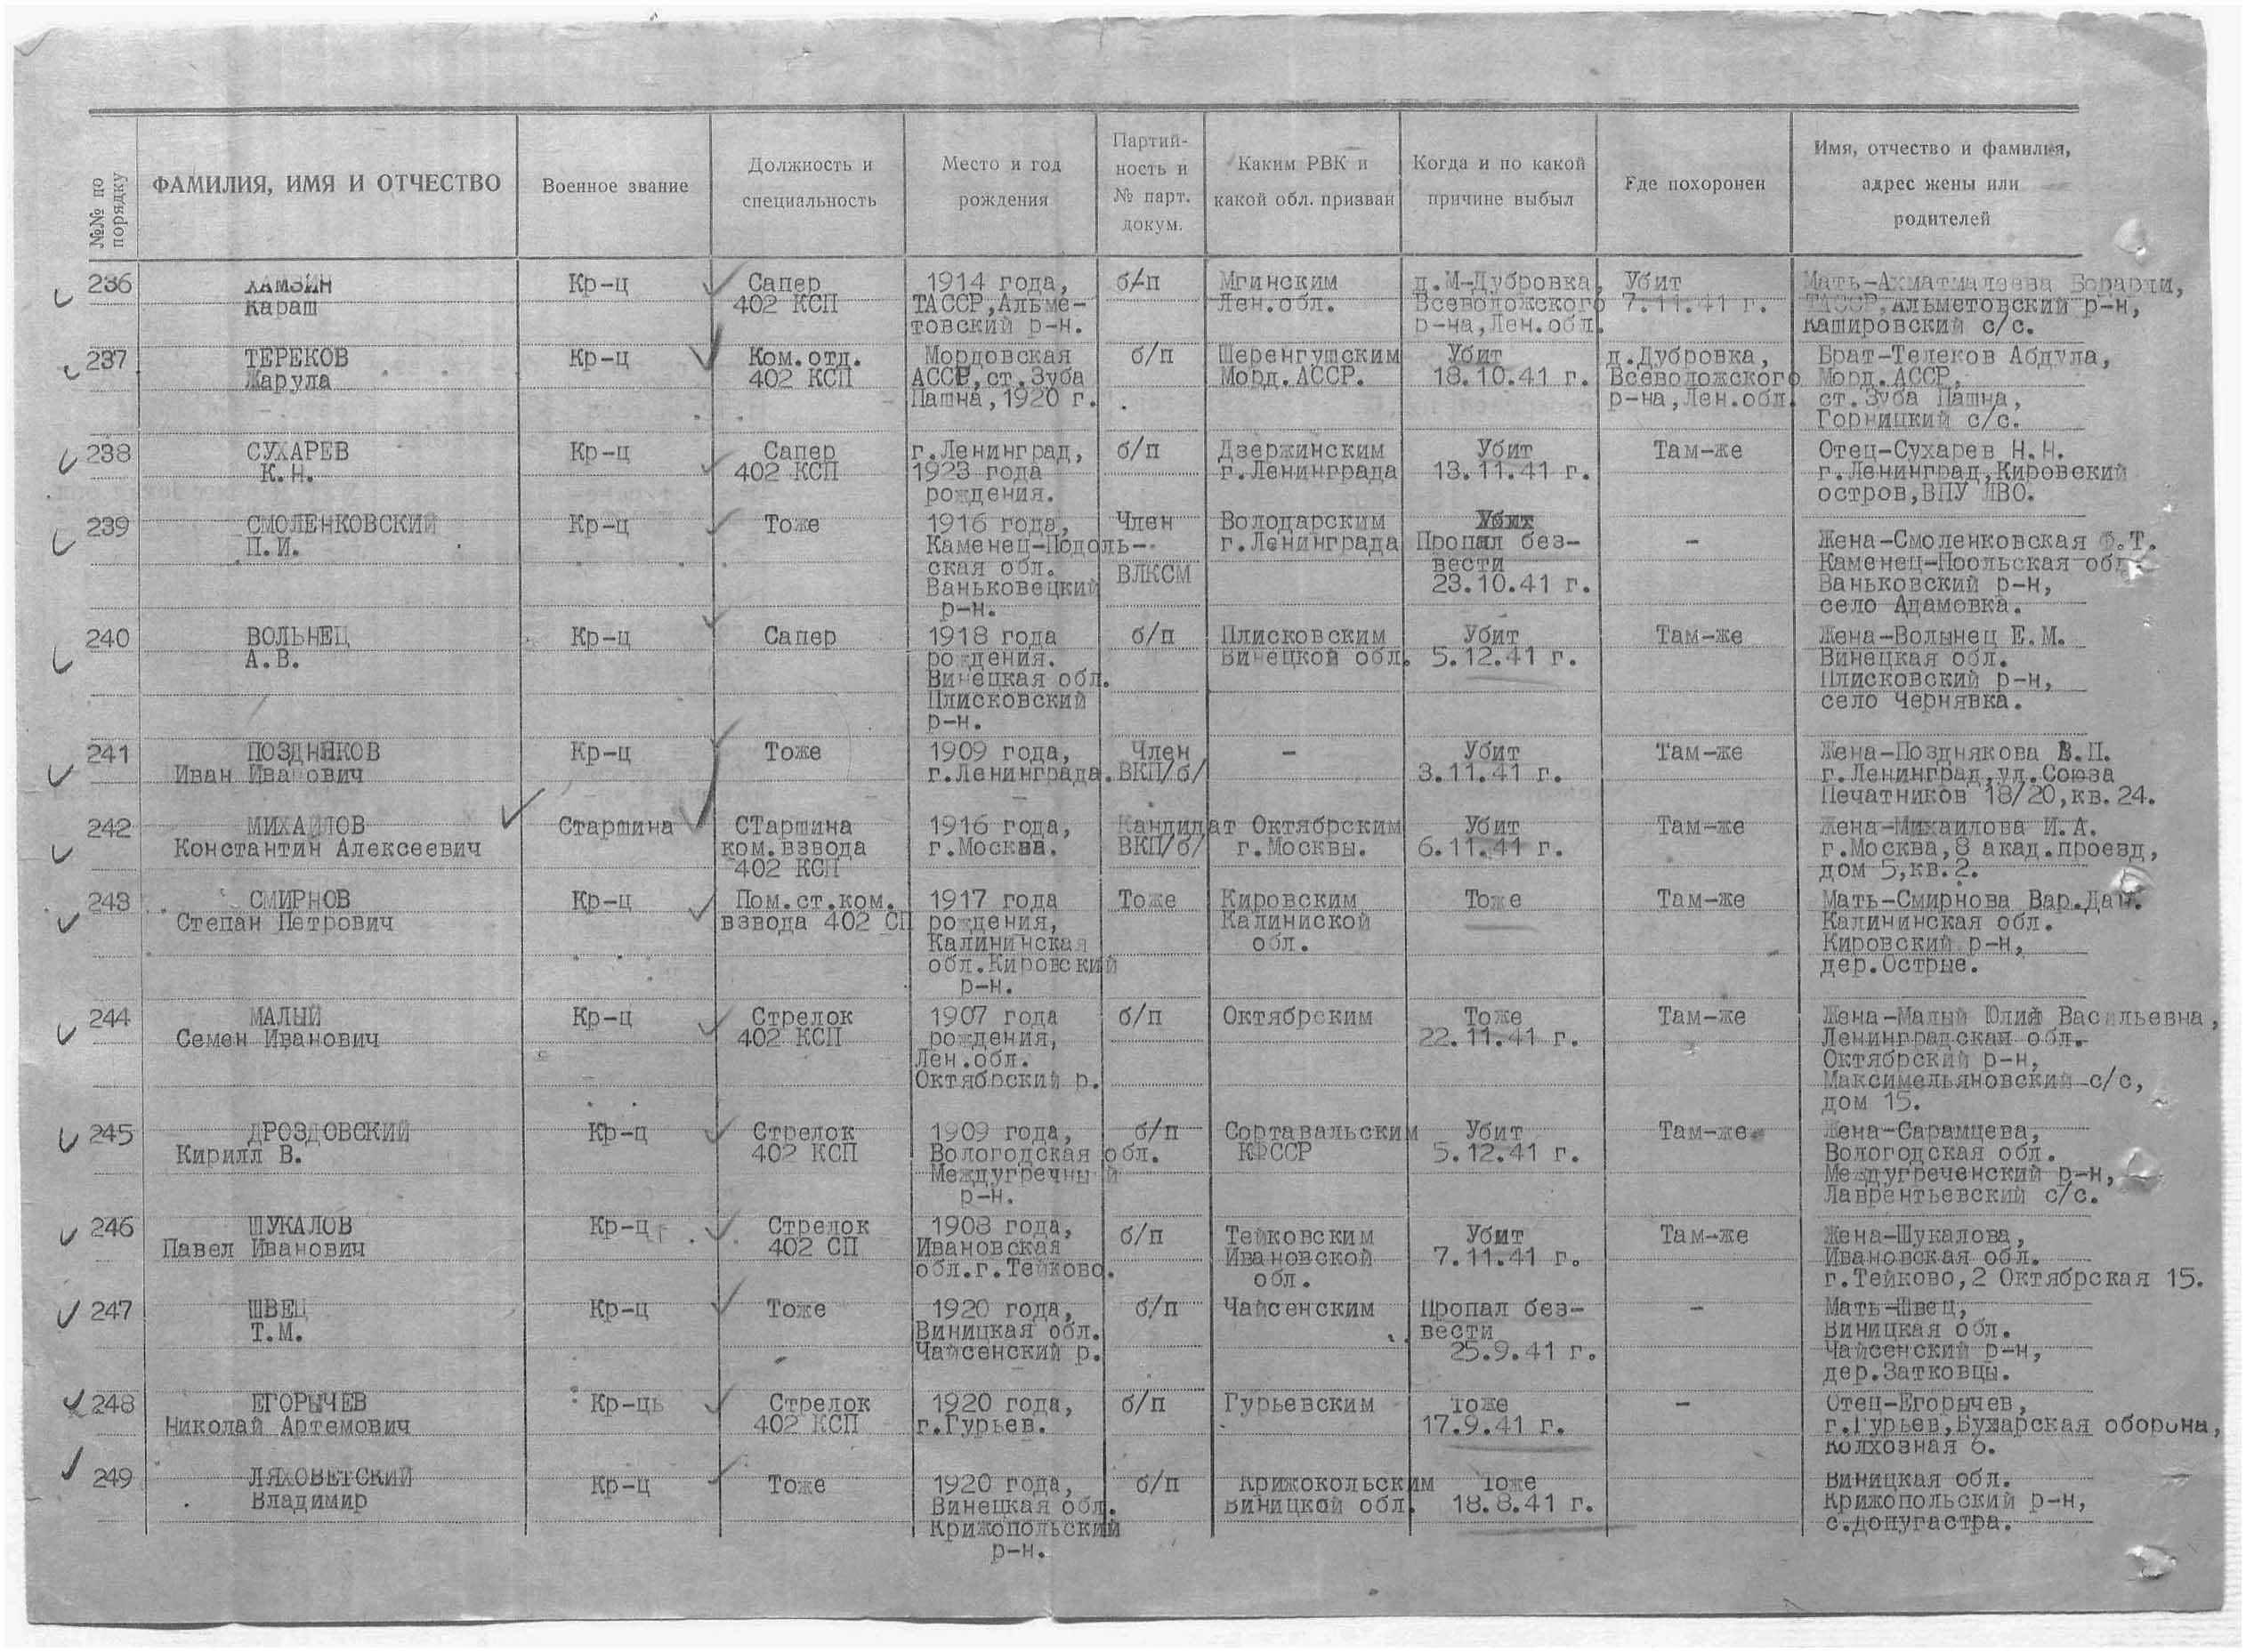 №№ по порядку
ФАМИЛИЯ, ИМЯ И ОТЧЕСТВО
Военное звание
Должность и
специальность
Место и год
рождения
Партий-
ность и
№ парт.
докум.
Каким РВК и
какой обл. призван
Когда и по какой
причине выбыл
Где похоронен
Имя, отчество и фамилия,
адрес жены или
родителей
236
ХАМЗИН
Караш
Кр-ц
Сапер
402 КСП
1914 года,
ТАССР,Альме-
товский р-н.
б/п
Мгинским
Лен.обл.
д.М-Дубровка,
Всеволожского
р-на,Лен.обл.
Убит
7.11.41 г.
Мать-Ахматмалеева
ТАССР,Альметовский р-н,
Кашировский с/с.
237
ТЕРЕКОВ
Жарула
Кр-ц
Ком.отд.
402 КСП
Мордовская
АССР,ст.Зуба
Пашна,1920 г.
б/п
Шеренгушским
Морд.АССР.
Убит
18.10.41 г.
д.Дубровка,
Всеволожского
р-на,Лен.обл.
Брат-Телеков Абдула,
Морд.АССР,
ст.Зуба Пашна,
Горницкий с/с.
238
СУХАРЕВ
К.Н.
Кр-ц
Сапер
402 КСП
г.Ленинград,
1923 года
рождения.
б/п
Дзержинским
г.Ленинграда
Убит
13.11.41 г.
Там-же
Отец-Сухарев Н.Н.
г.Ленинград,Кировский
остров,ВПУ ЛВО.
239
СМОЛЕНКОВСКИЙ
П.И.
Кр-ц
Тоже
1916 года,
Каменец-Подоль-
ская обл.
Ваньковецкий
р-н.
Член
ВЛКСМ
Володарским
г.Ленинграда
Убит
Пропал без-
вести
23.10.41 г.
-
Жена-Смоленковская Ф.Т.
Каменец-Поольская обл.
Ваньковский р-н,
село Адамовка.
240
ВОЛЬНЕЦ
А.В.
Кр-ц
Сапер
1918 года
рождения.
Винецкая обл.
Плисковский
р-н.
б/п
Плисковским
Винецкой обл.
Убит
5.12.41 г.
Там-же
Жена-Волынец Е.М.
Винецкая обл.
Плисковский р-н,
село Чернявка.
241
ПОЗДНЯКОВ
Иван Иванович
Кр-ц
Тоже
1909 года,
г.Ленинграда.
Член
ВКП/б/
-
Убит
3.11.41 г.
Там-же
Жена-Позднякова В.П.
г.Ленинград,ул.Союза
Печатников 18/20,кв.24.
242
МИХАЙЛОВ
Константин Алексеевич
Старшина
СТаршина
ком.взвода
402 КСП
1916 года,
г.Москва.
Кандидат
ВКП/б/
Октябрским
г.Москвы.
Убит
6.11.41 г.
Там-же
Жена-Михаилова И.А.
г.Москва,8 акад.проезд,
дом 5,кв.2.
243
СМИРНОВ
Степан Петрович
Кр-ц
Пом.ст.ком.
взвода 402 СП
1917 года
рождения,
Калининская
обл.Кировский
р-н.
Тоже
Кировским
Калиниской
обл.
Тоже
Там-же
Мать-Смирнова Вар.Дан.
Калининская обл.
Кировский р-н,
дер.Острые.
244
МАЛЫЙ
Семен Иванович
Кр-ц
Стрелок
402 КСП
1907 года
рождения,
Лен.обл.
Октябрский р.
б/п
Октябрским
Тоже
22.11.41 г.
Там-же
Жена-Малый Юлия Васильевна,
Ленинградская обл.
Октябрский р-н,
Максимельяновский с/с,
дом 15.
245
ДРОЗДОВСКИЙ
Кирилл В.
Кр-ц
Стрелок
402 КСП
1909 года,
Вологодская обл.
Междугречный
р-н.
б/п
Сортавальским
КФССР
Убит
5.12.41 г.
Там-же
Жена-Сарамцева,
Вологодская обл.
Междугреченский р-н,
Лаврентьевский с/с.
246
ШУКАЛОВ
Павел Иванович
Кр-ц
Стрелок
402 СП
1908 года,
Ивановская
обл.г.Тейково.
б/п
Тейковским
Ивановской
обл.
Убит
7.11.41 г.
Там-же
Жена-Шукалова,
Ивановская обл.
г.Тейково,2 Октябрская 15.
247
ШВЕЦ
Т.М.
Кр-ц
Тоже
1920 года,
Виницкая обл.
Чайсенский р.
б/п
Чайсенским
Пропал без-
вести
25.9.41 г.
-
Мать-Швец,
Виницкая обл.
Чайсенский р-н,
дер.Затковцы.
248
ЕГОРЫЧЕВ
Николай Артемович
Кр-ць
Стрелок
402 КСП
1920 года,
г.Гурьев.
б/п
Гурьевским
Тоже
17.9.41 г.
-
Отец-Егорычев,
г.Гурьев,Бухарская оборона,
Колхозная 6.
249
ЛЯХОВЕТСКИЙ
Владимир
Кр-ц
Тоже
1920 года,
Винецкая обл.
Крижопольский
р-н.
б/п
Крижокольским
Виницкой обл.
Тоже
18.8.41 г.
Виницкая обл.
Крижопольский р-н,
с.Допугастра.